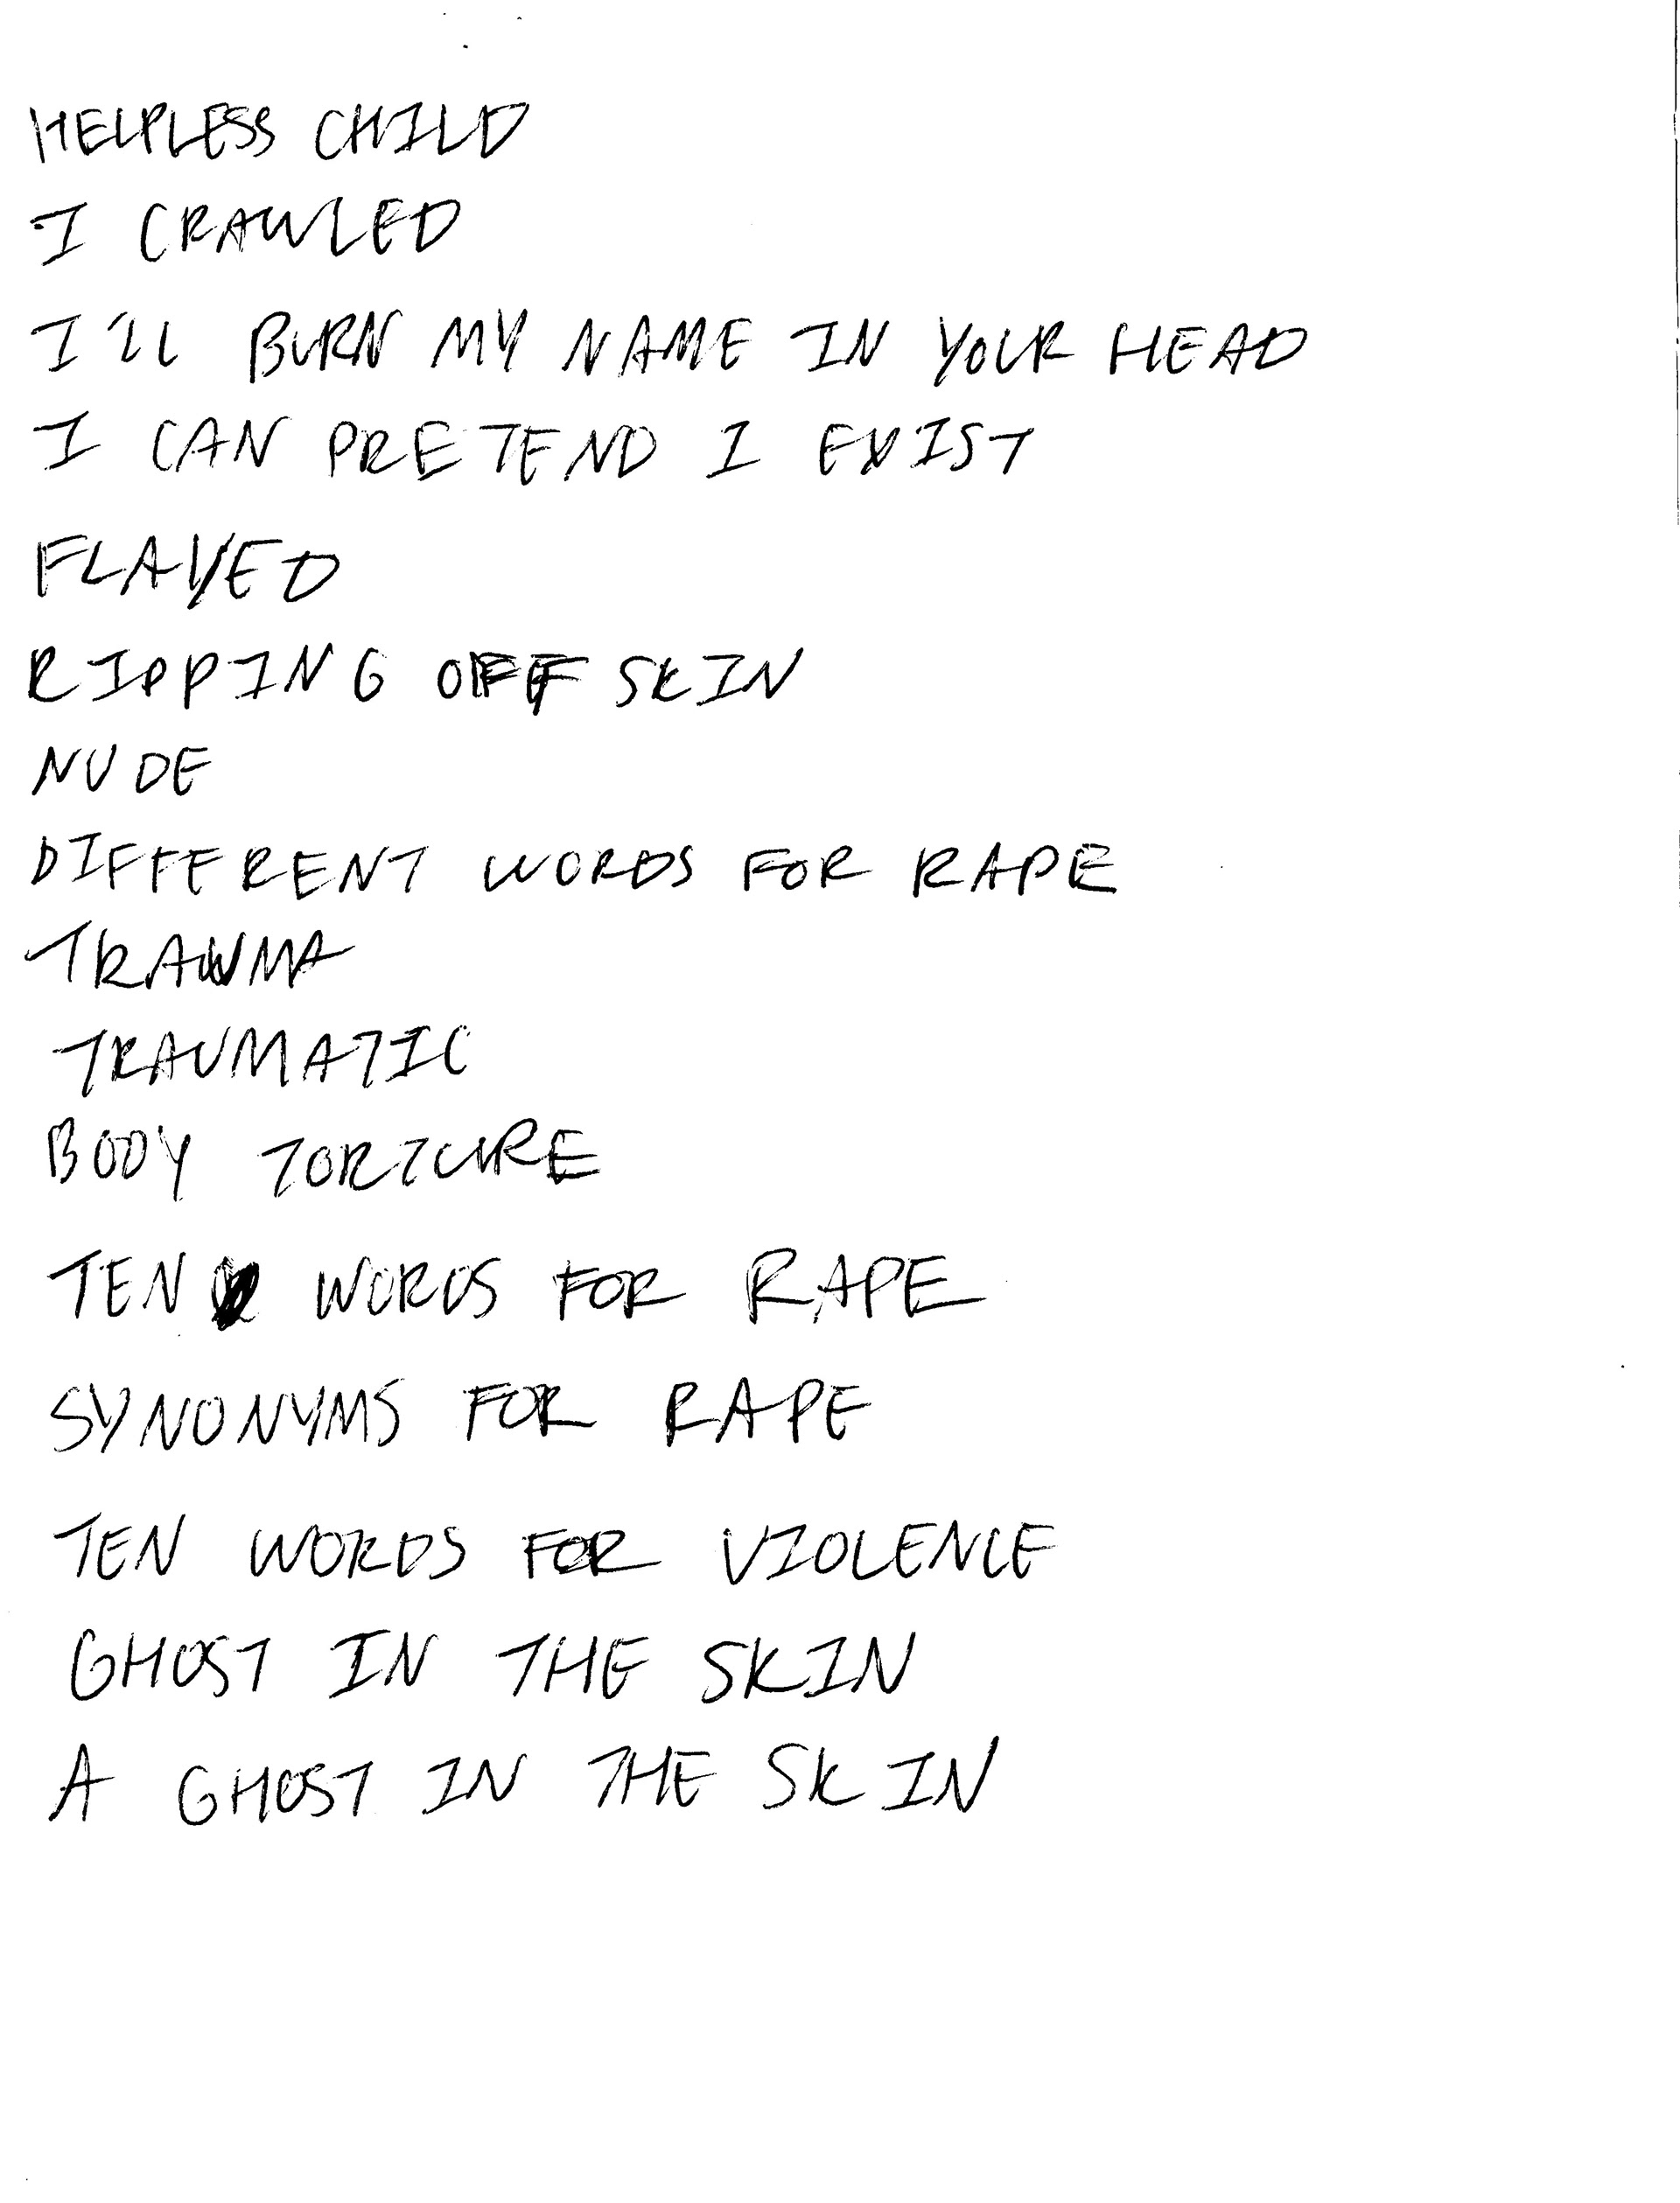 HELPLESS CHILD
I CRAWLED
I'LL BURN MY NAME IN YOUR HEAD
I CAN PRETEND I EXIST
FLAYED
RIPPING OFF SKIN
NUDE
DIFFERENT WORDS FOR RAPE
TRAUMA
TRAUMATIC
BODY TORTURE
TEN WORDS FOR RAPE
SYNONYMS FOR RAPE
TEN WORDS FOR VIOLENCE
GHOST IN THE SKIN
A GHOST IN THE SKIN